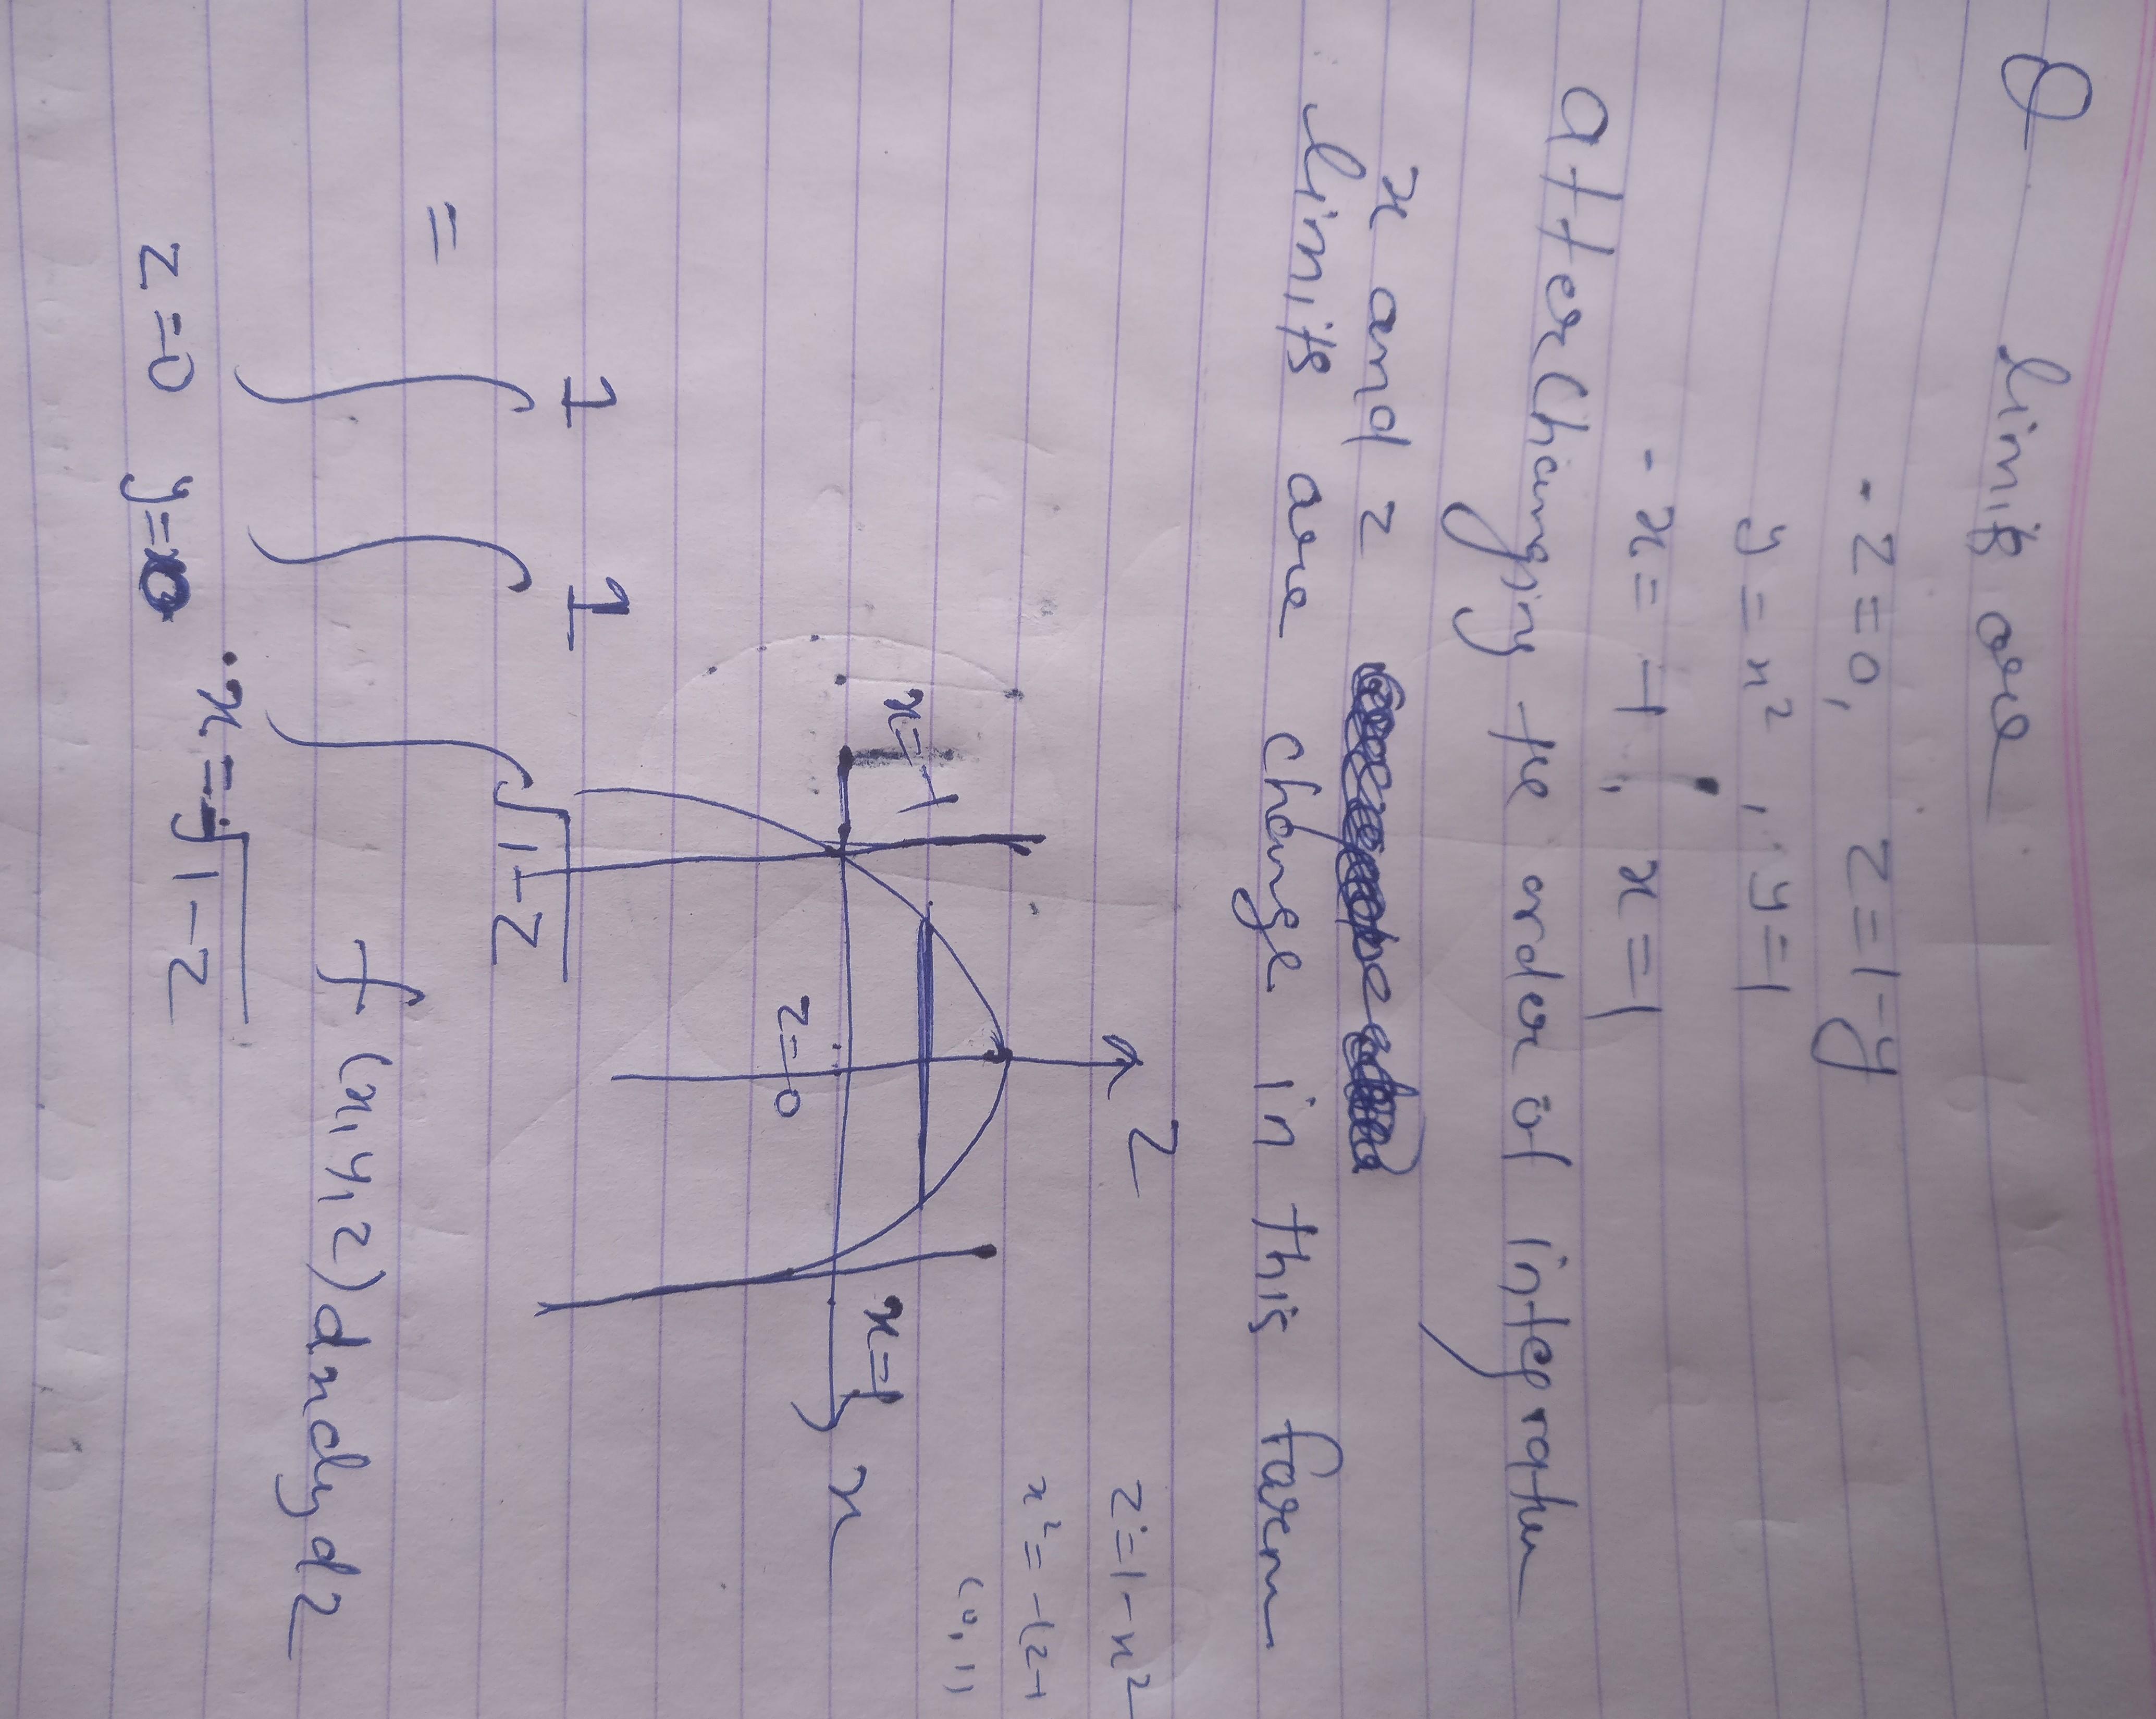 Q limits are
- z=0, z=1-y
y=x², y=1
- x=-1, x=1
after changing the order of integration
x and z
limits are change in this form
z=1-x²
z
x²=-(z-1
(0,1)
x=-1
x=1
x
z=0
= ∫ ∫ ∫ f(x,y,z)dxdydz
1 1 √1-z
z=0 y=0 x=-√1-z